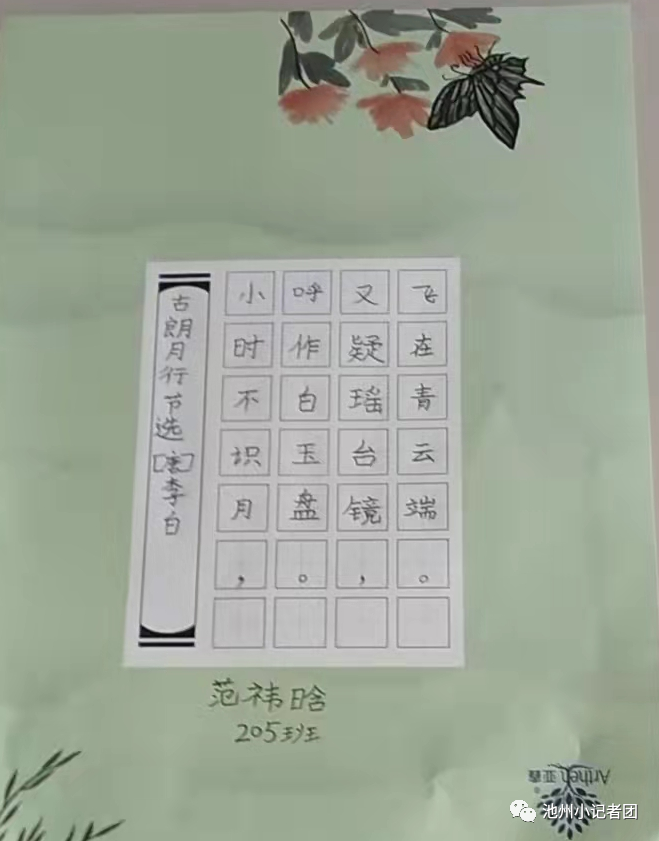 古朗月行节选[唐]李白
小时不识月，
呼作白玉盘。
又疑瑶台镜，
飞在青云端。
范祎晗
205班
Artheh 亚鑫
池州小记者团